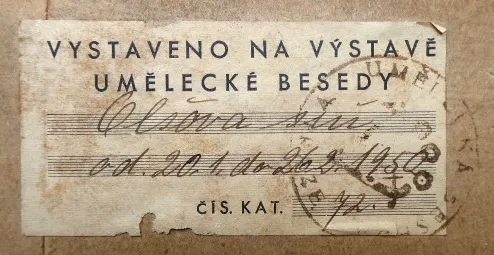 VYSTAVENO NA VÝSTAVĚ
UMĚLECKÉ BESEDY
Alšova síň.
od. 20.1. do 26.2. 1950
ČÍS. KAT. 72.
UMĚLECKÁ BES